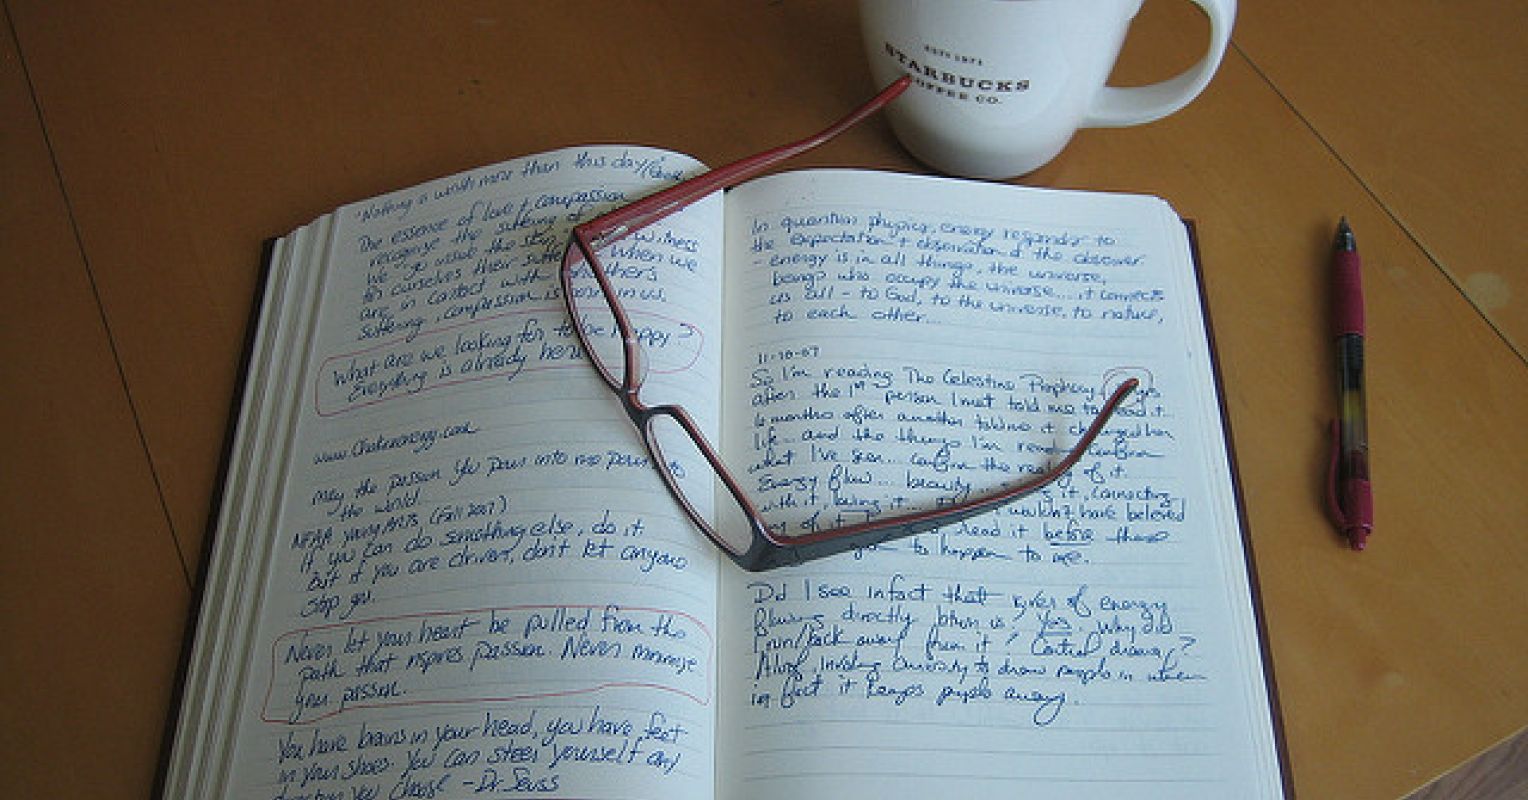 ESTD 1971
STARBUCKS
COFFEE CO.
"Nothing is worth more than this day/
The essence of love + compassion
recognize the suffering of
we usual the witness
for ourselves their when we
are in contact with another's
suffering, compassion is born in us.
What are we looking for to be happy?
Everything is already here
may the passion you pour into me pour into
the world.
NFAA young ARTS (Fall 2007)
If you can do something else, do it
but if you are driven, don't let anyone
stop you.
Never let your heart be pulled from the
path that inspires passion. Never minimize
your passion.
You have brains in your head, you have feet
in your shoes. You can steer yourself any
direction you choose - Dr. Seuss
In quantum physics, energy responds to
the expectation + observation of the observer
- energy is in all things, the universe,
beings who occupy the universe.... it connects
us all - to God, to the universe, to nature,
to each other...
11-18-07
So I'm reading The Celestine Prophecy
after the 1st person I met told me to read it..
6 months after another told me it changed her
life... and the things I'm reading confirm
what I've seen... confirm the reality of it.
Energy flow... beauty... it, connecting
with it, loving it... wouldn't have believed
of it read it before these
to happen to me.
Did I see in fact that types of energy
flowing directly between us? Yes. Why did
I run/back away from it? Control drama?
Aloof, inviting curiosity to draw people in when
in fact it keeps people away.